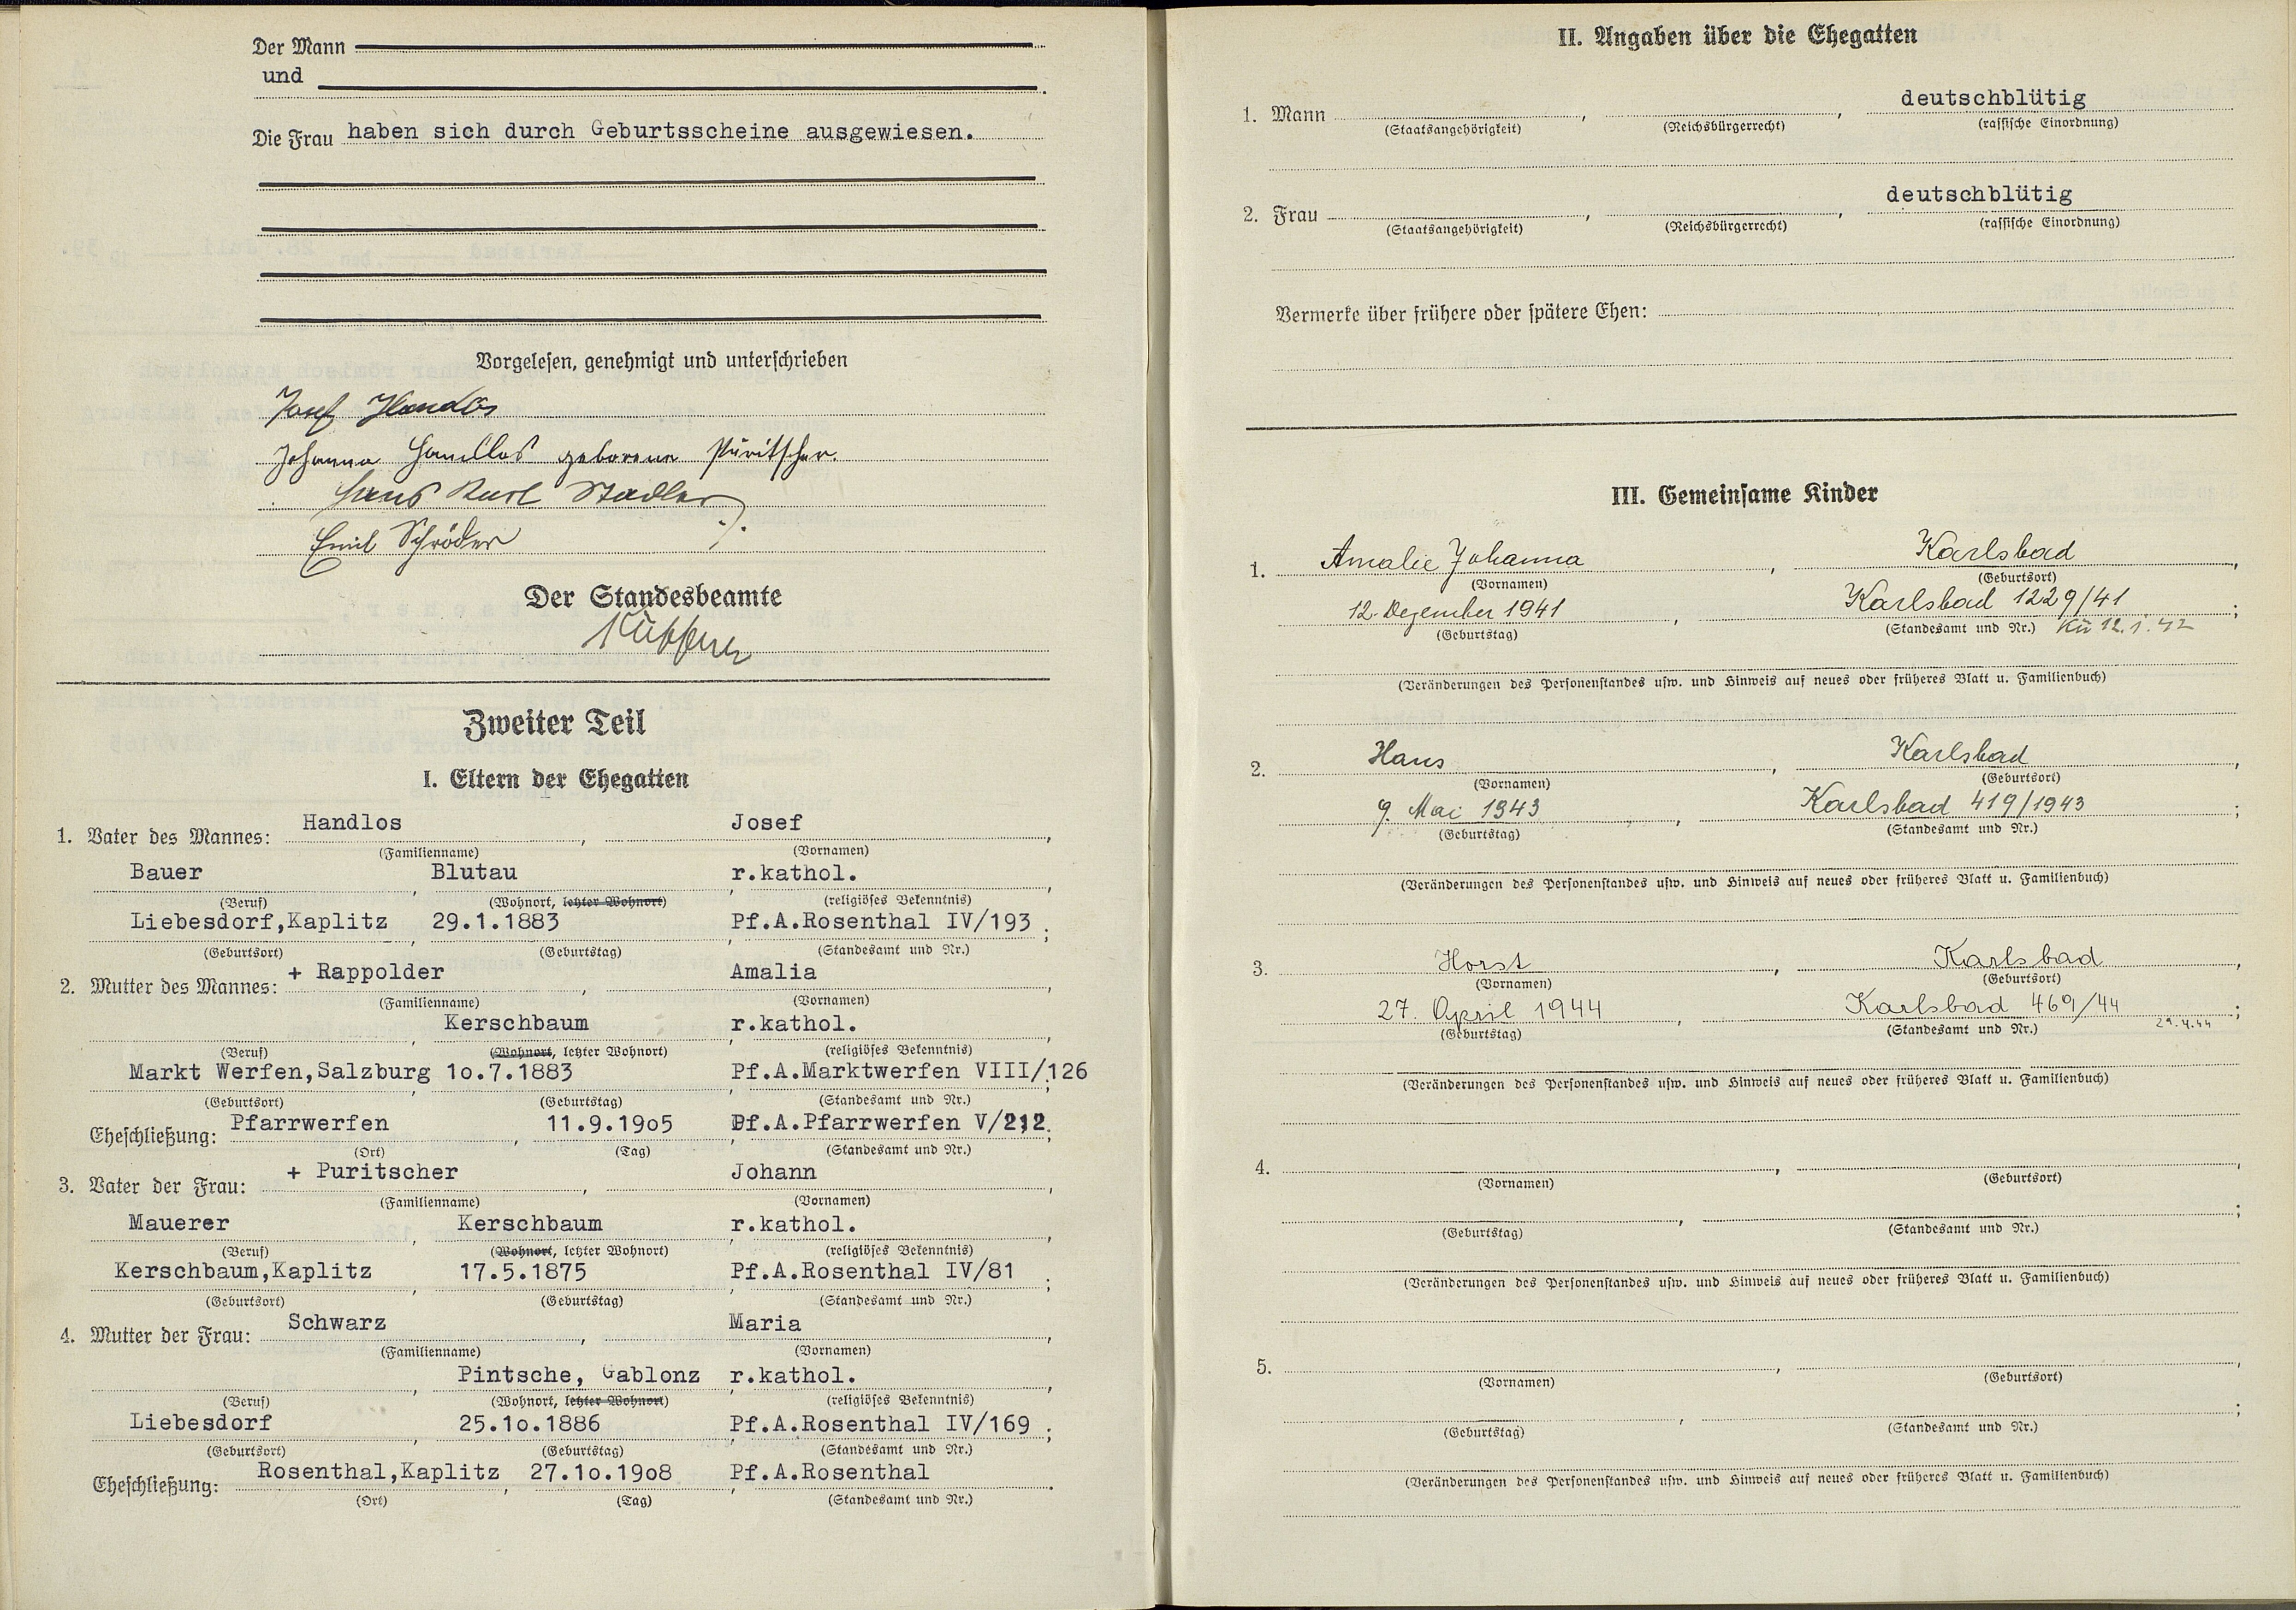 Der Mann
und
Die Frau haben sich durch Geburtsscheine ausgewiesen.
Vorgelesen, genehmigt und unterschrieben
Josef Handlos
Johanna Handlos geborene Püritscher.
Hans Karl Stadler
Emil Schröder
Der Standesbeamte
Zweiter Teil
I. Eltern der Ehegatten
1. Vater des Mannes: Handlos, Josef,
(Familienname) (Vornamen)
Bauer, Blutau, r.kathol.,
(Beruf) (Wohnort, letzter Wohnort) (religiöses Bekenntnis)
Liebesdorf,Kaplitz, 29.1.1883, Pf.A.Rosenthal IV/193;
(Geburtsort) (Geburtstag) (Standesamt und Nr.)
2. Mutter des Mannes: + Rappolder, Amalia,
(Familienname) (Vornamen)
, Kerschbaum, r.kathol.,
(Beruf) (Wohnort, letzter Wohnort) (religiöses Bekenntnis)
Markt Werfen,Salzburg, 1o.7.1883, Pf.A.Marktwerfen VIII/126;
(Geburtsort) (Geburtstag) (Standesamt und Nr.)
Eheschließung: Pfarrwerfen, 11.9.19o5, Pf.A.Pfarrwerfen V/212.
(Ort) (Tag) (Standesamt und Nr.)
3. Vater der Frau: + Puritscher, Johann,
(Familienname) (Vornamen)
Mauerer, Kerschbaum, r.kathol.,
(Beruf) (Wohnort, letzter Wohnort) (religiöses Bekenntnis)
Kerschbaum,Kaplitz, 17.5.1875, Pf.A.Rosenthal IV/81;
(Geburtsort) (Geburtstag) (Standesamt und Nr.)
4. Mutter der Frau: Schwarz, Maria,
(Familienname) (Vornamen)
, Pintsche, Gablonz, r.kathol.,
(Beruf) (Wohnort, letzter Wohnort) (religiöses Bekenntnis)
Liebesdorf, 25.1o.1886, Pf.A.Rosenthal IV/169;
(Geburtsort) (Geburtstag) (Standesamt und Nr.)
Eheschließung: Rosenthal,Kaplitz, 27.1o.19o8, Pf.A.Rosenthal.
(Ort) (Tag) (Standesamt und Nr.)
II. Angaben über die Ehegatten
1. Mann , , deutschblütig
(Staatsangehörigkeit) (Reichsbürgerrecht) (rassische Einordnung)
2. Frau , , deutschblütig
(Staatsangehörigkeit) (Reichsbürgerrecht) (rassische Einordnung)
Vermerke über frühere oder spätere Ehen:
III. Gemeinsame Kinder
1. Amalie Johanna, Karlsbad,
(Vornamen) (Geburtsort)
12. Dezember 1941, Karlsbad 1229/41;
(Geburtstag) (Standesamt und Nr.) Kü 12.1.42
(Veränderungen des Personenstandes usw. und Hinweis auf neues oder früheres Blatt u. Familienbuch)
2. Hans, Karlsbad,
(Vornamen) (Geburtsort)
9. Mai 1943, Karlsbad 419/1943;
(Geburtstag) (Standesamt und Nr.)
(Veränderungen des Personenstandes usw. und Hinweis auf neues oder früheres Blatt u. Familienbuch)
3. Horst, Karlsbad,
(Vornamen) (Geburtsort)
27. April 1944, Karlsbad 469/44;
(Geburtstag) (Standesamt und Nr.)
(Veränderungen des Personenstandes usw. und Hinweis auf neues oder früheres Blatt u. Familienbuch)
4. , ,
(Vornamen) (Geburtsort)
, ;
(Geburtstag) (Standesamt und Nr.)
(Veränderungen des Personenstandes usw. und Hinweis auf neues oder früheres Blatt u. Familienbuch)
5. , ,
(Vornamen) (Geburtsort)
, ;
(Geburtstag) (Standesamt und Nr.)
(Veränderungen des Personenstandes usw. und Hinweis auf neues oder früheres Blatt u. Familienbuch)